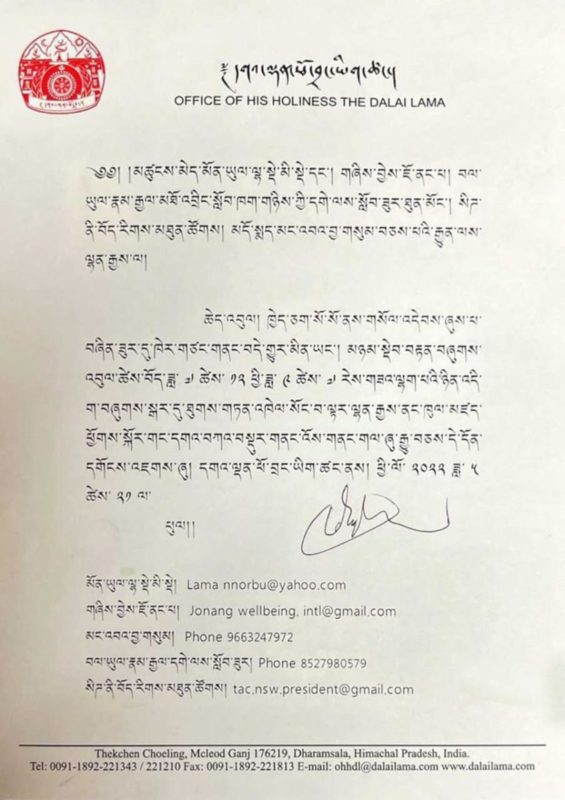 ༄༅། །སྐུ་གསུང་ཐུགས་
OFFICE OF HIS HOLINESS THE DALAI LAMA
༄༅། །མཚུངས་མེད་མོན་ཡུལ་ལྷ་སྡེ་མི་སྡེ་དང་། གཞིས་བྱེས་ཇོ་ནང་པ། བལ་
ཡུལ་རྣམ་རྒྱལ་མཐོ་འབྲིང་སློབ་ཁག་གཉིས་ཀྱི་དགེ་ལས་སློབ་ཟུར་ཐུན་མོང་། སིཌ་
ནི་བོད་རིགས་མཐུན་ཚོགས། མདོ་སྨད་མང་འབའ་བྱ་གསུམ་བཅས་པའི་རྒྱུན་ལས་
ལྷན་རྒྱས་ལ།
ཆེད་འབུལ། ཁྱེད་ཅག་སོ་སོ་ནས་གསོལ་འདེབས་ཞུས་པ་
བཞིན་ཟུར་དུ་ཁེར་གཙང་གནང་བདེ་གྱུར་མིན་ཡང་། མཉམ་སྡེབ་བརྟན་བཞུགས་
འབུལ་ཚེས་བོད་ཟླ་ ༧ ཚེས་ ༡༢ ཕྱི་ཟླ་ ༩ ཚེས་ ༧ རེས་གཟའ་ལྷག་པའི་ཉིན་འདི་
ག་བཞུགས་སྒར་དུ་ཐུགས་གཏན་འཁེལ་སོང་བ་ལྟར་ལྷན་རྒྱས་ནང་ཁུལ་མཛད་
ཕྱོགས་སྐོར་གང་དགའ་བཀའ་བསྡུར་གནང་འོས་གནང་གལ་ཞུ་རྒྱུ་བཅས་དེ་དོན་
དགོངས་འཇགས་ཞུ། དགའ་ལྡན་ཕོ་བྲང་ཡིག་ཚང་ནས། ཕྱི་ལོ་ ༢༠༢༢ ཟླ་ ༥
ཚེས་ ༢༡ ལ་
ཕུལ།།
མོན་ཡུལ་ལྷ་སྡེ་མི་སྡེ། Lama nnorbu@yahoo.com
གཞིས་བྱེས་ཇོ་ནང་པ། Jonang wellbeing, intl@gmail.com
མང་འབའ་བྱ་གསུམ། Phone 9663247972
བལ་ཡུལ་རྣམ་རྒྱལ་དགེ་ལས་སློབ་ཟུར། Phone 8527980579
སིཌ་ནི་བོད་རིགས་མཐུན་ཚོགས། tac.nsw.president@gmail.com
Thekchen Choeling, Mcleod Ganj 176219, Dharamsala, Himachal Pradesh, India.
Tel: 0091-1892-221343 / 221210 Fax: 0091-1892-221813 E-mail: ohhdl@dalailama.com www.dalailama.com